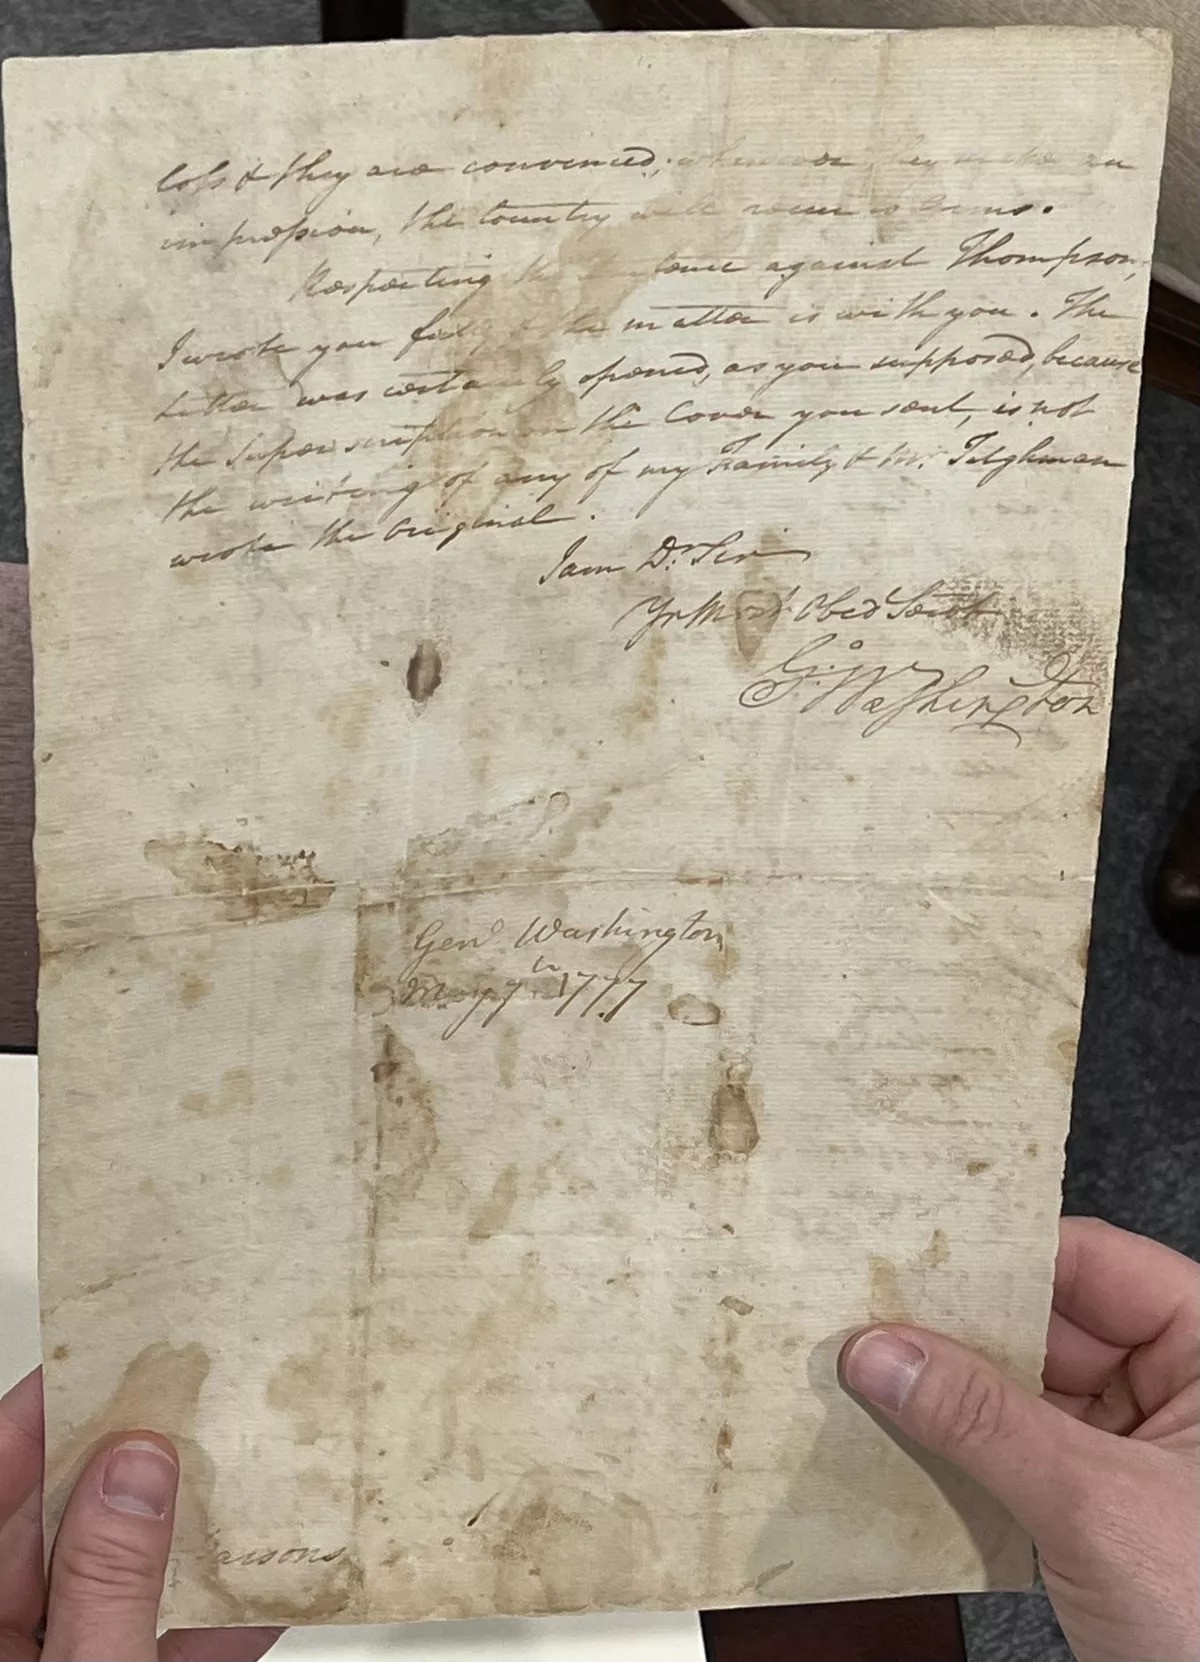 loss & they are convinced, whenever they make an
impression, the Country will rise in Arms.
Respecting the Sentence against Thompson,
I wrote you fully & the matter is with you. The
Letter was certainly opened, as you supposed, because
the Superscription on the Cover you sent, is not
the writing of any of my Family & Mr. Tilghman
wrote the Original.
I am Dr. Sir
Yr Most Obed Servt
Go: Washington
Genl Washington
May 7th 1777
Parsons